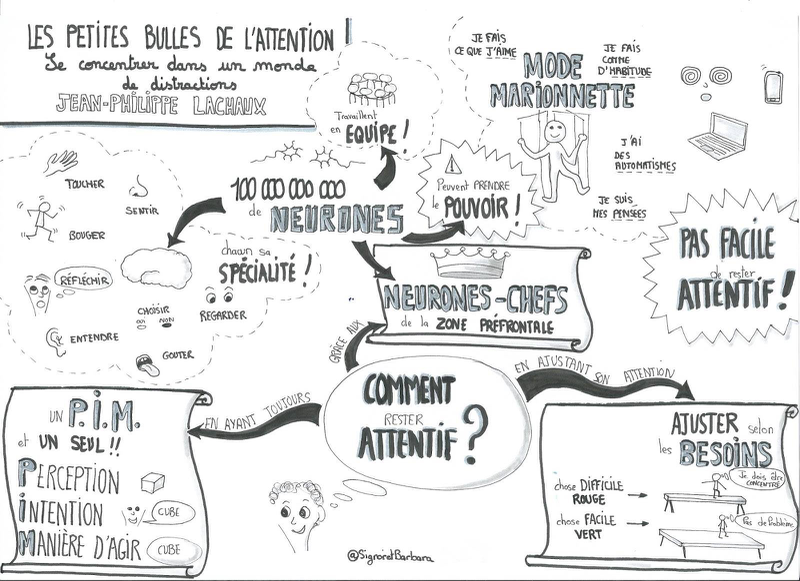 LES PETITES BULLES DE L'ATTENTION
Se concentrer dans un monde
de distractions
JEAN-PHILIPPE LACHAUX
Travaillent
en ÉQUIPE !
JE FAIS
CE QUE J'AIME
JE FAIS
COMME
D'HABITUDE
MODE
MARIONNETTE
J'AI
DES
AUTOMATISMES
JE SUIS
MES PENSÉES
TOUCHER
SENTIR
BOUGER
RÉFLÉCHIR
CHOISIR
OUI NON
ENTENDRE
GOUTER
REGARDER
chacun sa
SPÉCIALITÉ !
100 000 000 000
de NEURONES
Peuvent PRENDRE
le POUVOIR !
PAS FACILE
de rester
ATTENTIF !
NEURONES-CHEFS
de la ZONE PRÉFRONTALE
GRÂCE AUX
COMMENT
RESTER
ATTENTIF ?
EN AYANT TOUJOURS
EN AJUSTANT SON ATTENTION
UN P.I.M.
et UN SEUL !!
PERCEPTION
INTENTION
CUBE
MANIÈRE D'AGIR
CUBE
AJUSTER selon
les BESOINS
Je dois être
CONCENTRÉ
chose DIFFICILE
ROUGE
chose FACILE
VERT
Pas de problème
@SignoretBarbara